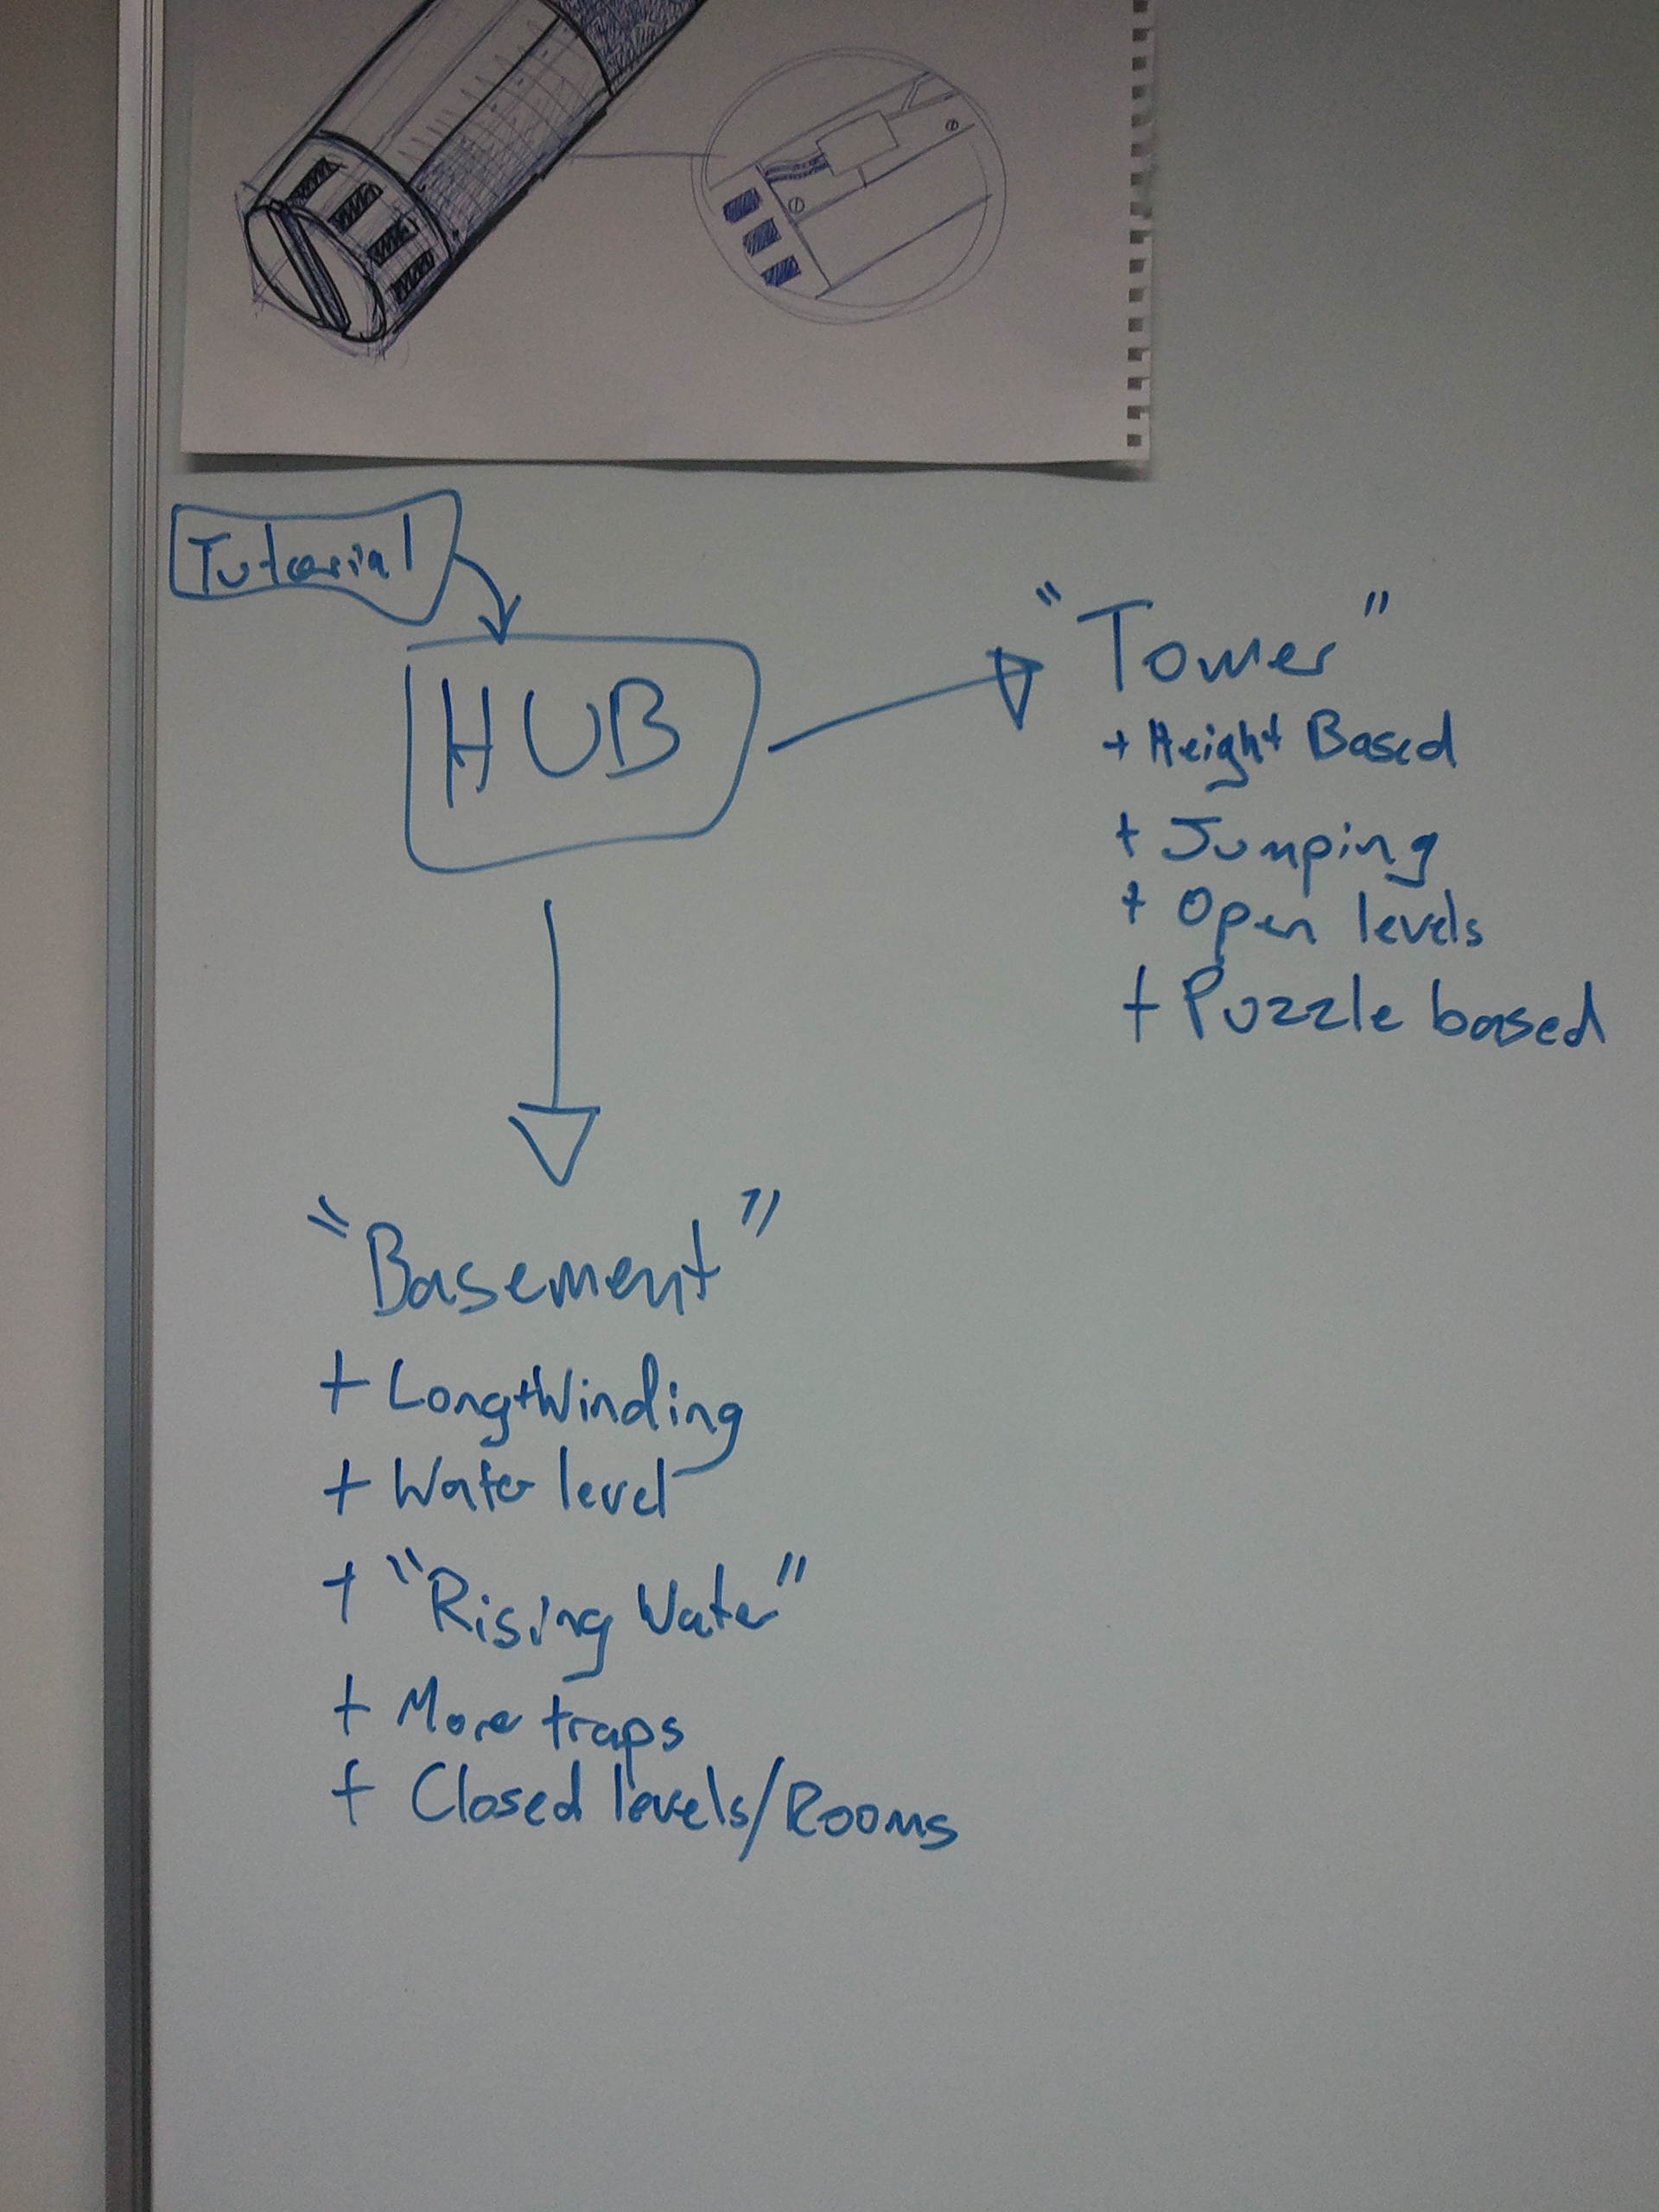 Tutorial
HUB
"Tower"
+ Height Based
+ Jumping
+ Open levels
+ Puzzle based
"Basement"
+ Long+Winding
+ Water level
+ "Rising Water"
+ More traps
+ Closed levels/Rooms